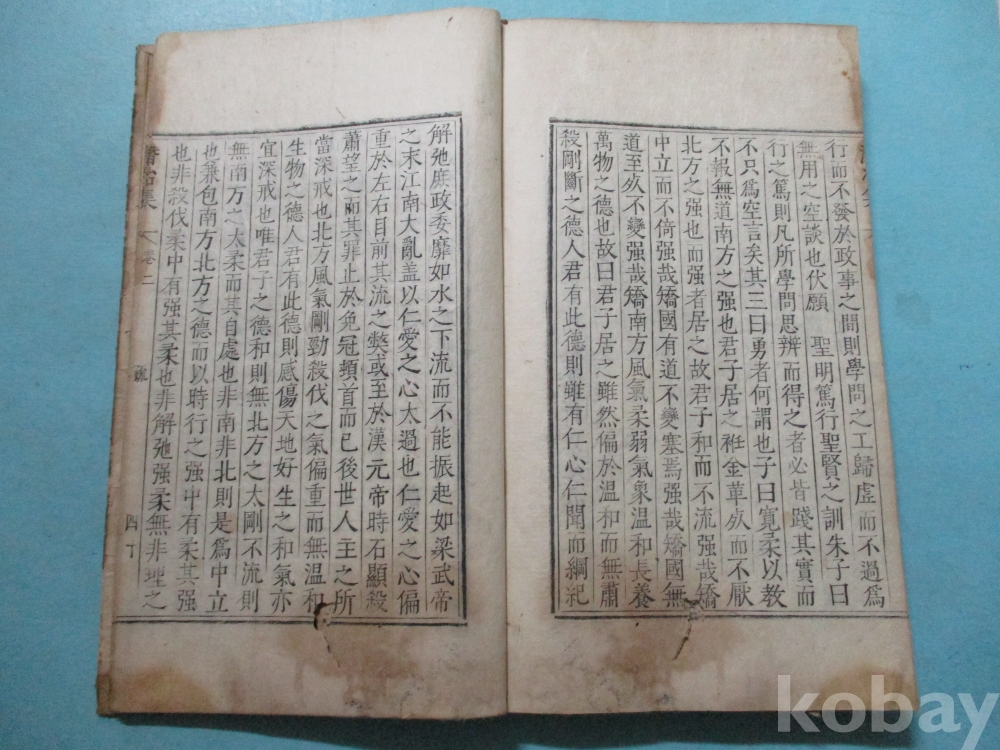 行而不發於政事之間則學問之工歸虛而不過爲
無用之空談也伏願 聖明篤行聖賢之訓朱子曰
行之篤則凡所學問思辨而得之者必皆踐其實而
不只爲空言矣其三曰勇者何謂也子曰寬柔以敎
不報無道南方之强也君子居之袵金革死而不厭
北方之强也而强者居之故君子和而不流强哉矯
中立而不倚强哉矯國有道不變塞焉强哉矯國無
道至死不變强哉矯南方風氣柔弱氣象溫和長養
萬物之德也故曰君子居之雖然偏於溫和而無肅
殺剛斷之德人君有此德則雖有仁心仁聞而綱紀
解弛庶政委靡如水之下流而不能振起如梁武帝
之末江南大亂盖以仁愛之心太過也仁愛之心偏
重於左右目前其流之獘或至於漢元帝時石顯殺
蕭望之而其罪止於免冠頓首而已後世人主之所
當深戒也北方風氣剛勁殺伐之氣偏重而無溫和
生物之德人君有此德則感傷天地好生之和氣亦
宜深戒也唯君子之德和則無北方之太剛不流則
無南方之太柔而其自處也非南非北則是爲中立
也兼包南方北方之德而以時行之强中有柔其强
也非殺伐柔中有强其柔也非解弛强柔無非理之
集 卷二 疏 四丁
kobay